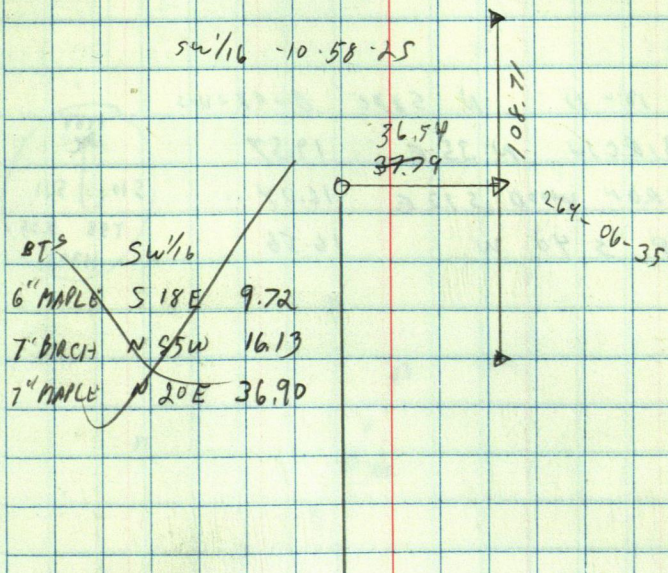 SW 1/16 -10-58-25
108.71
36.54
37.79
264-06-35
BTS SW 1/16
6" MAPLE S 18 E 9.72
7" BIRCH N 85 W 16.13
7" MAPLE N 20 E 36.90